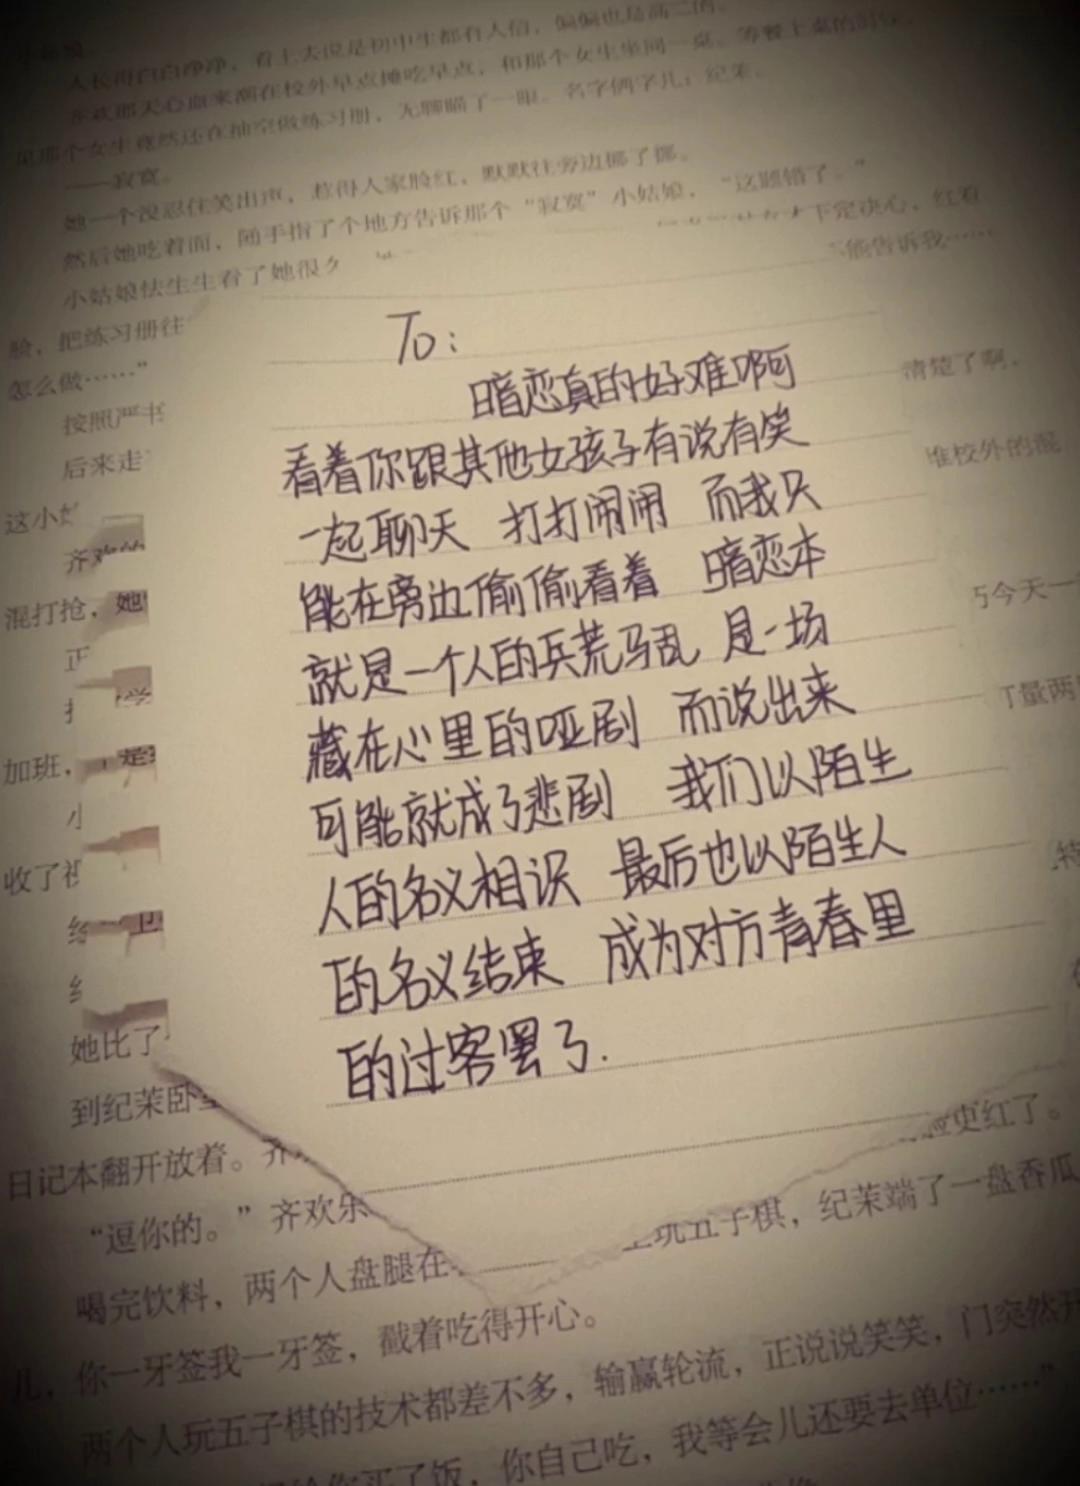 人长得白白净净，看上去说是初中生都有人信，偏偏也是高二的。
齐欢那天心血来潮在校外早点摊吃早点，和那个女生坐同一桌。等餐上桌的时候，
见那个女生竟然还在抽空做练习册，无聊瞄了一眼。名字俩字儿：纪茉。
——寂寞。
她一个没忍住笑出声，惹得人家脸红，默默往旁边挪了挪。
然后她吃着面，随手指了个地方告诉那个“寂寞”小姑娘，“这题错了。”
小姑娘怯生生看了她很久 下定决心，红着
脸，把练习册往 能告诉我……
怎么做……”
To：
暗恋真的好难啊
看着你跟其他女孩子有说有笑
一起聊天 打打闹闹 而我只
能在旁边偷偷看着 暗恋本
就是一个人的兵荒马乱 是一场
藏在心里的哑剧 而说出来
可能就成了悲剧 我们以陌生
人的名义相识 最后也以陌生人
的名义结束 成为对方青春里
的过客罢了.
清楚了啊，
按照严书
后来走 校外的混
这小姑
齐欢
混打抢，她 今天一
正
加班， 是 量两
小
收了
她比了
到纪茉卧
日记本翻开放着。齐 更红了。
“逗你的。”齐欢乐
喝完饮料，两个人盘腿在 玩五子棋，纪茉端了一盘香瓜
儿，你一牙签我一牙签，戳着吃得开心。
两个人玩五子棋的技术都差不多，输赢轮流，正说说笑笑，门突然开
给你买了饭，你自己吃，我等会儿还要去单位……”